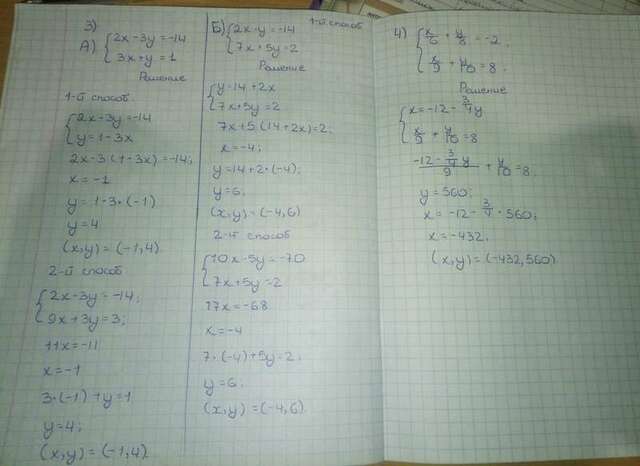 3)
А) { 2x - 3y = -14
3x + y = 1
Решение
1-й способ
{ 2x - 3y = -14
y = 1 - 3x
2x - 3 · (1 - 3x) = -14;
x = -1
y = 1 - 3 · (-1)
y = 4
(x, y) = (-1, 4).
2-й способ
{ 2x - 3y = -14;
9x + 3y = 3;
11x = -11
x = -1
3 · (-1) + y = 1
y = 4;
(x, y) = (-1, 4).
1-й способ
Б) { 2x - y = -14
7x + 5y = 2
Решение
{ y = 14 + 2x
7x + 5y = 2
7x + 5 (14 + 2x) = 2;
x = -4;
y = 14 + 2 · (-4);
y = 6;
(x, y) = (-4, 6)
2-й способ
{ 10x - 5y = -70
7x + 5y = 2
17x = -68
x = -4
7 · (-4) + 5y = 2;
y = 6;
(x, y) = (-4, 6).
4) { x/6 + y/8 = -2
x/9 + y/10 = 8.
Решение
{ x = -12 - 3/4 y
x/9 + y/10 = 8
(-12 - 3/4 y)/9 + y/10 = 8.
y = 560;
x = -12 - 3/4 · 560;
x = -432;
(x, y) = (-432, 560).